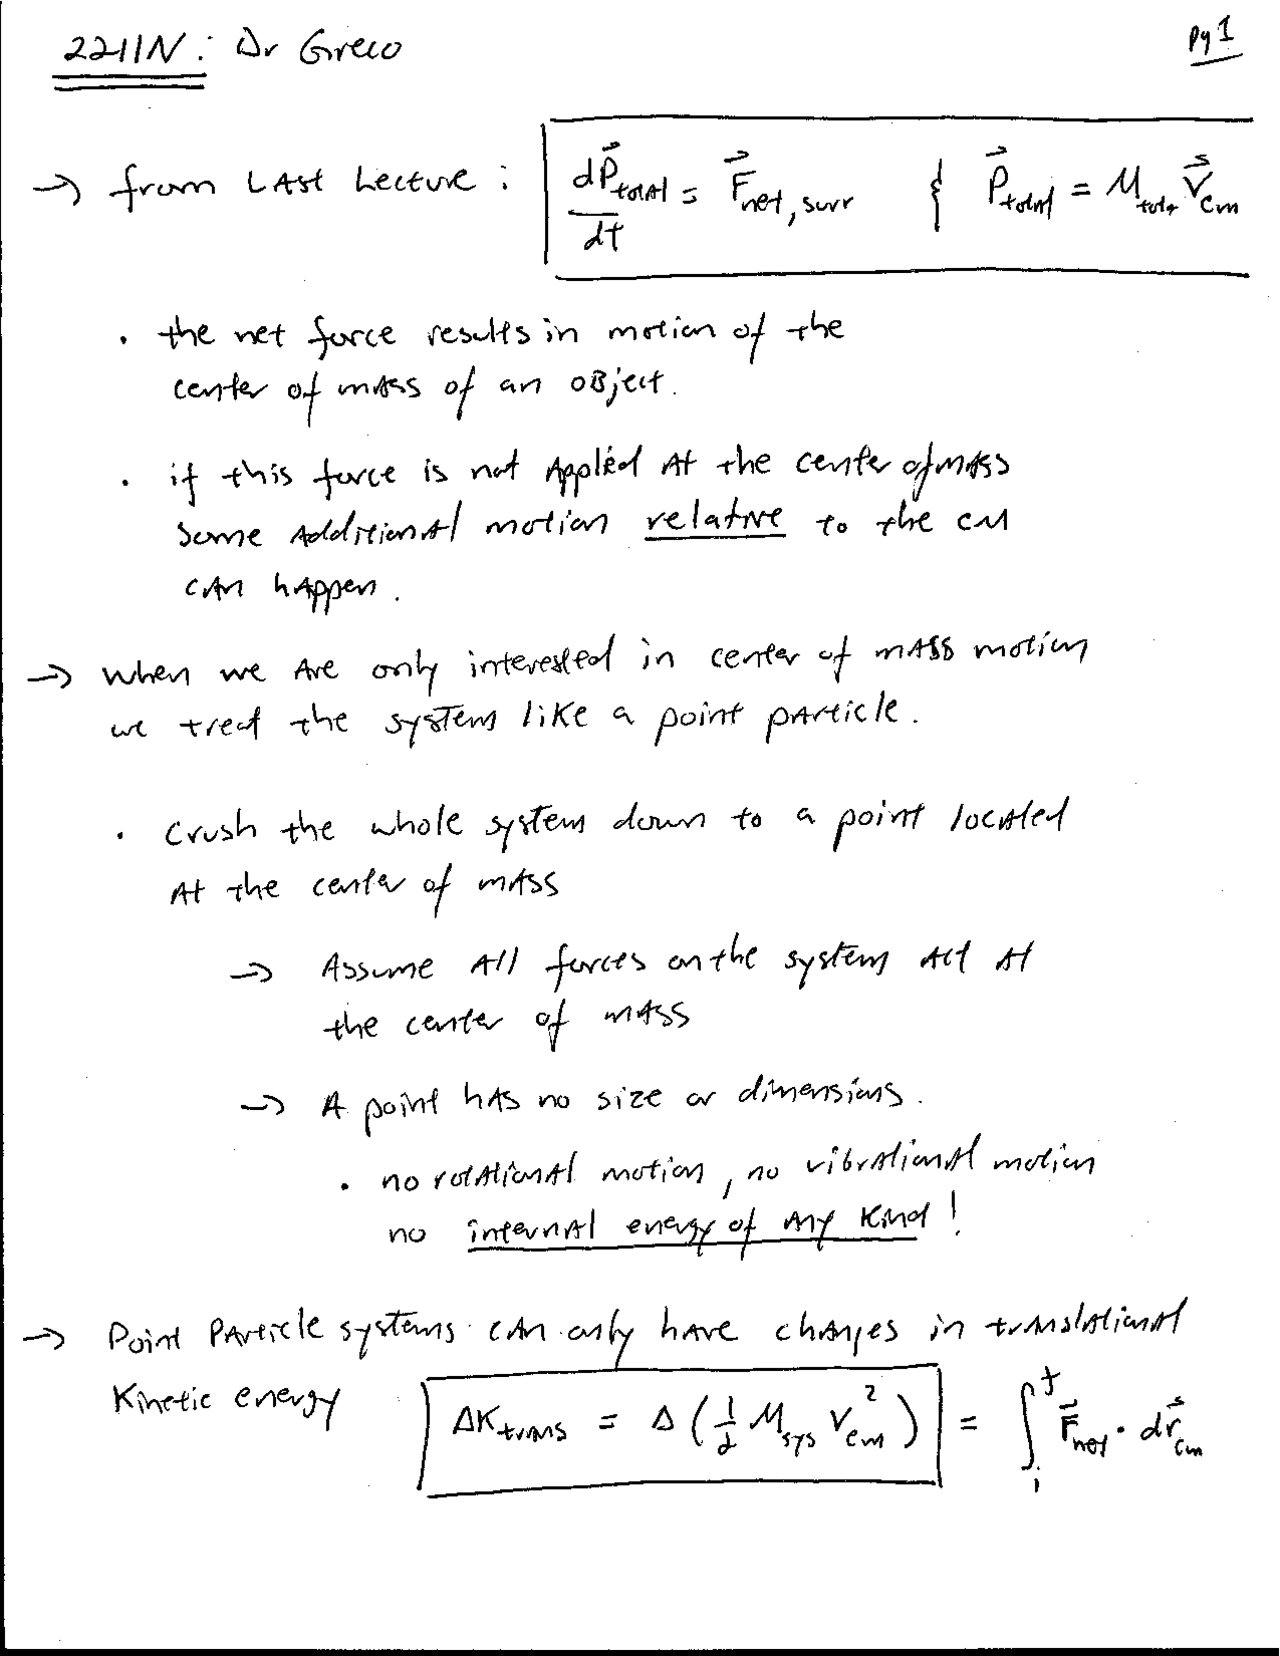 2211N: Dr Greco
pg 1
→ from LAst Lecture: dP⃗total/dt = F⃗net, surr & P⃗total = Mtotal V⃗cm
• the net force results in motion of the
center of mAss of an oBject.
• if this force is not Applied At the center of mAss
some AdditionAl motion relative to the CM
cAn hAppen.
→ when we Are only interested in center of mASS motion
we treat the system like a point pArticle.
• Crush the whole system down to a point locAted
At the center of mAss
→ Assume All forces on the system Act At
the center of mAss
→ A point hAs no size or dimensions.
• no rotAtionAl motion, no vibrAtionAl motion
no internAl energy of Any Kind!
→ Point PArticle systems cAn only hAve chAnges in trAnslAtionAl
Kinetic energy ΔKtrans = Δ(½ Msys Vcm²) = ∫ᵢᶠ F⃗net · dr⃗cm